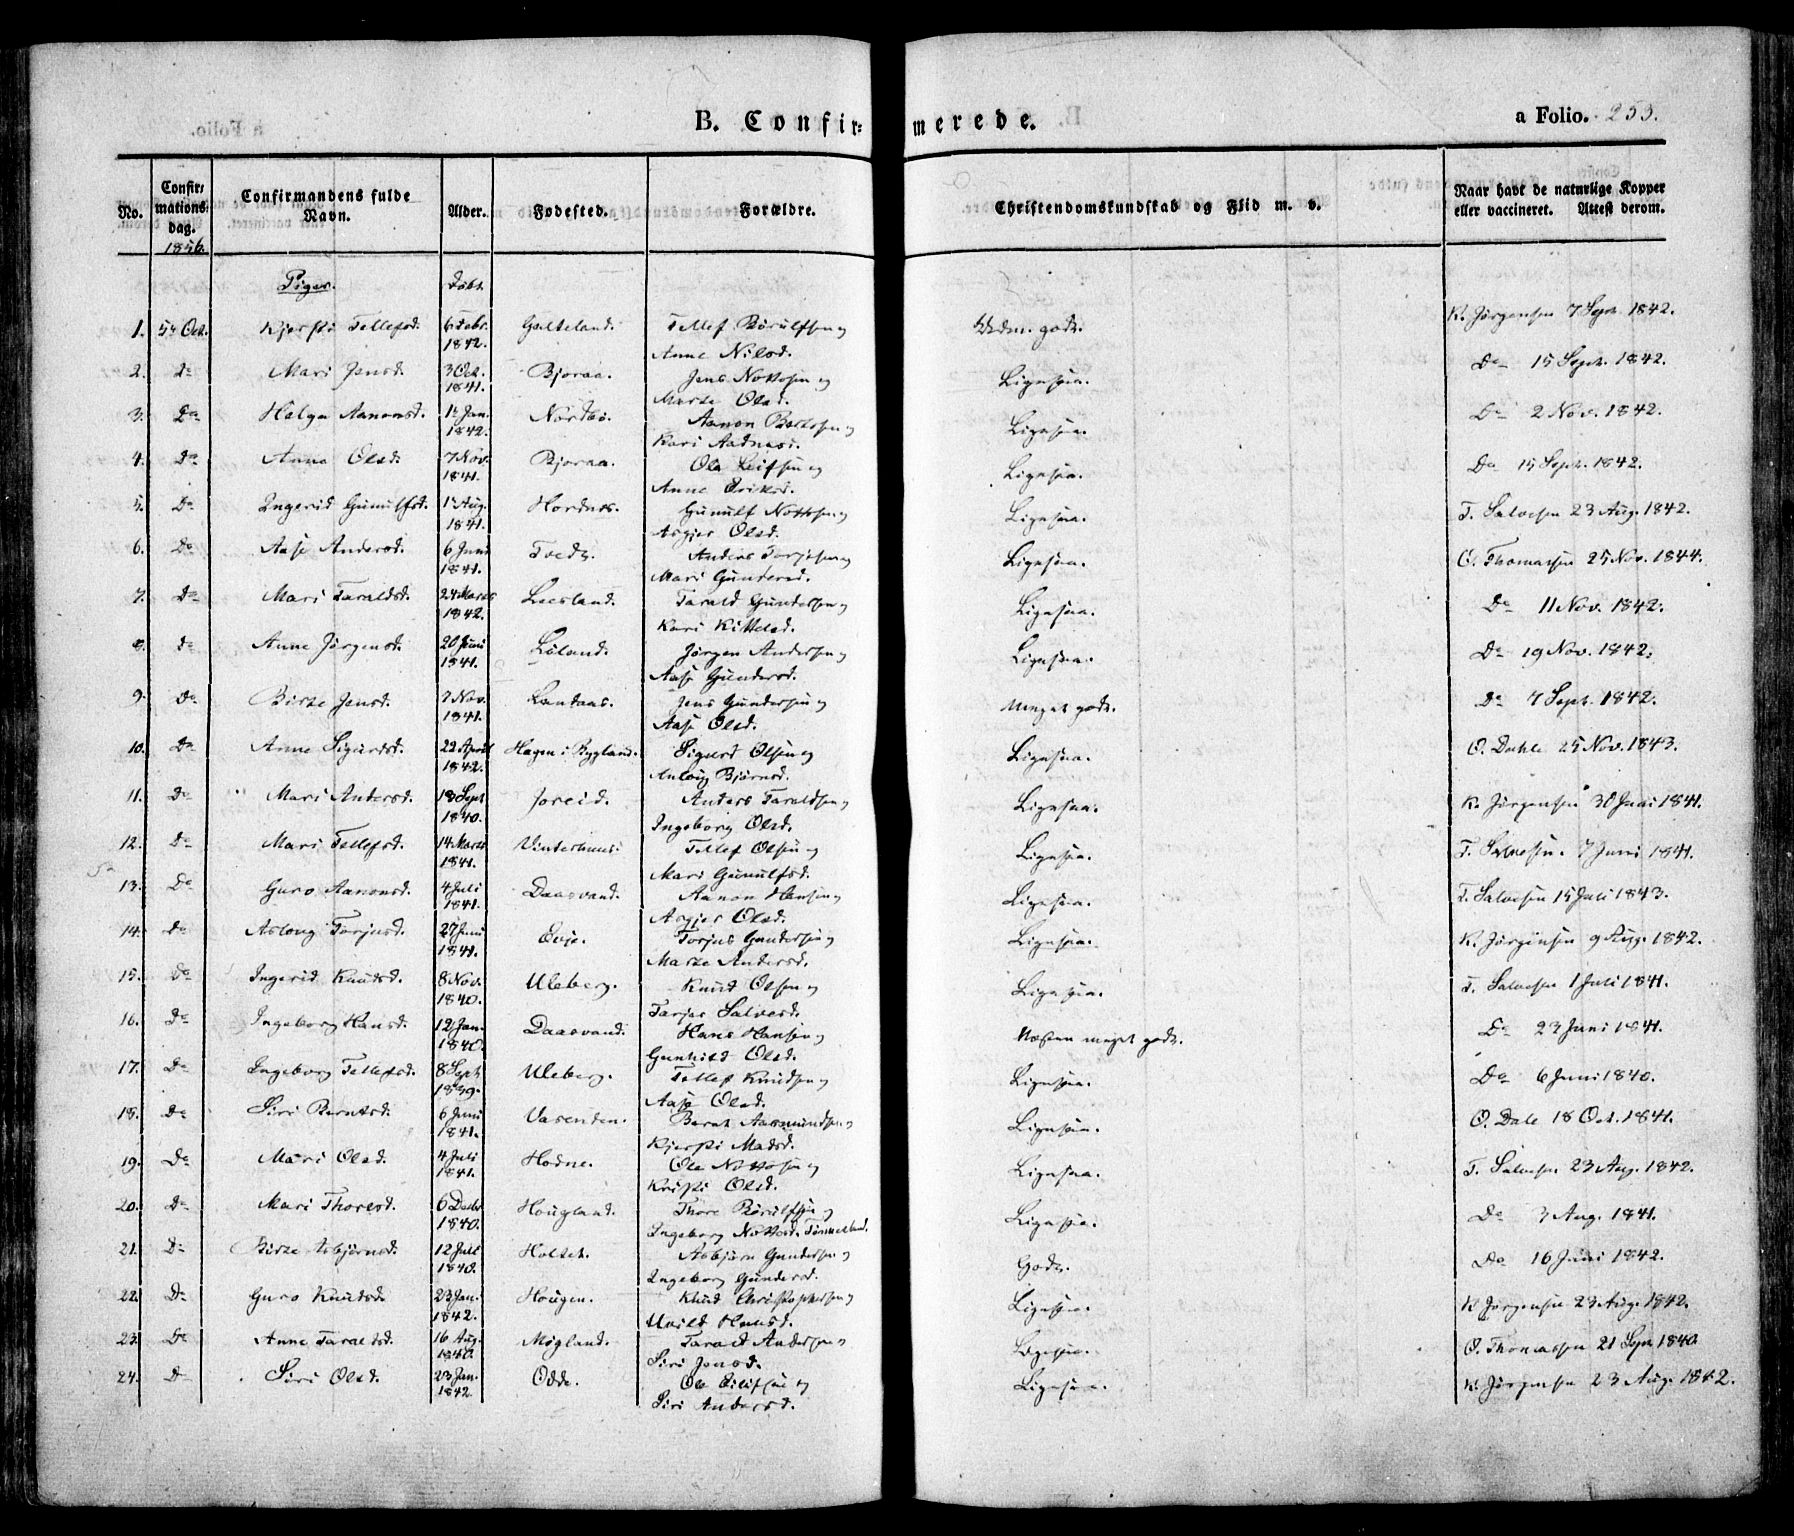 B. Confir= merede.
a Folio. 253.
No. Confir= mations= dag. 1856. Confirmandens fulde Navn. Alder. Fødested. Forældre. Christendomskundskab og Flid m. v. Naar havt de naturlige Kopper eller vaccineret. Attest derom.
Piger. døbt
1. 5te Oct. Kjersti Tellefsd. 6 Febr. 1842. Galteland. Tellef Børulfsen og Anne Nilsd. godt. K. Jørgensen 7 Sept. 1842.
2. Do Mari Jensd. 3 Oct. 1841. Bjoraa. Jens Nottosen og Marte Olsd. Ligesaa. Do 15 Sept. 1842.
3. Do Helga Aanonsd. 1ste Jan. 1842. Nordbø. Aanon Bertosen og Kari Aadnesd. Ligesaa. Do 2 Nov. 1842.
4. Do Anne Olsd. 7 Nov. 1841. Bjoraa. Ole Leifsen og Anne Eriksd. Ligesaa. Do 15 Sept. 1842.
5. Do Ingerid Gunulfsd. 1ste Aug. 1841. Hordnes. Gunulf Nottosen og Asgjer Olsd. Ligesaa. T. Salvesen 23 Aug. 1842.
6. Do Aase Andersd. 6 Juni 1841. Tvedt. Anders Torjesen og Mari Gundersd. Ligesaa. O. Thomassen 25 Nov. 1844.
7. Do Mari Taraldsd. 24 Marts 1842. Liesland. Tarald Gundersen og Kari Kittelsd. Ligesaa. Do 11 Nov. 1842.
8. Do Anne Jørgensd. 20 Juni 1841. Løland. Jørgen Andersen og Aase Gundersd. Ligesaa. Do 19 Nov. 1842.
9. Do Birte Jensd. 7 Nov. 1841. Landaas. Jens Gundersen og Aase Olsd. Meget godt. Do 7 Sept. 1842.
10. Do Anne Sigurdsd. 22 April 1842. Hagen i Bygland. Sigurd Olsen og Anlaug Bjørnsd. Ligesaa. O. Dahle 25 Nov. 1843.
11. Do Mari Andersd. 13 Sept 1840. Joreid. Anders Taraldsen og Ingeborg Olsd. Ligesaa. K. Jørgensen 30 Juni 1841.
12. Do Mari Tellefsd. 14 Marts 1841. Vinterhuus. Tellef Olsen og Mari Gunulfsd. Ligesaa. T. Salvesen. 7 Juni 1841.
13. Do Guro Aanonsd. 4 Juli 1841. Daasvand. Aanon Hansen og Asgjer Olsd. Ligesaa. T. Salvesen 15 Juli 1843.
14. Do Aslaug Torjusd. 27 Juni 1841. Evje. Torjus Gundersen og Marte Andersd. Ligesaa. K. Jørgensen 9 Aug. 1842.
15. Do Ingerid Knudsd. 8 Nov. 1840. Uleberg. Knud Olsen og Tarjer Salvesd. Ligesaa. T. Salvesen 1 Juli 1841.
16. Do Ingeborg Hansd. 12 Jan. 1840. Daasvand. Hans Hansen og Gunhild Olsd. Næsten meget godt. Do 23 Juni 1841.
17. Do Ingeborg Tellefsd. 8 Sept 1839. Uleberg. Tellef Knudsen og Aase Olsd. Ligesaa. Do 6 Juni 1840.
18. Do Siri Berntsd. 6 Juni 1841. Vasenden. Bernt Aasmundsen og Kjersti Madsd. Ligesaa. O. Dale 18 Oct. 1841.
19. Do Mari Olsd. 4 Juli 1841. Hodne. Ole Nottosen og Kristi Olsd. Ligesaa. T. Salvesen 23 Aug. 1842.
20. Do Mari Thoresd. 6 Decbr 1840. Hougland. Thore Børulfsen og Ingeborg Nottosd. Ligesaa. Do 3 Aug. 1841.
21. Do Birte Asbjørnsd. 12 Juli 1840. Holtet. Asbjørn Gundersen og Ingeborg Gundersd. Godt. Do 16 Juni 1842.
22. Do Guro Knudsd. 23 Jan. 1842. Hougen. Knud Christophersen og Hansd. Ligesaa. K. Jørgensen 23 Aug. 1842.
23. Do Anne Taraldsd. 16 Aug. 1840. Møgland. Tarald Andersen og Siri Jensd. Ligesaa. O. Thomassen 21 Sept 1840
24. Do Siri Olsd. 23 Jan. 1842 Odde. Ole Eilifsen og Siri Andersd. Ligesaa. K. Jørgensen 23 Aug. 1842.